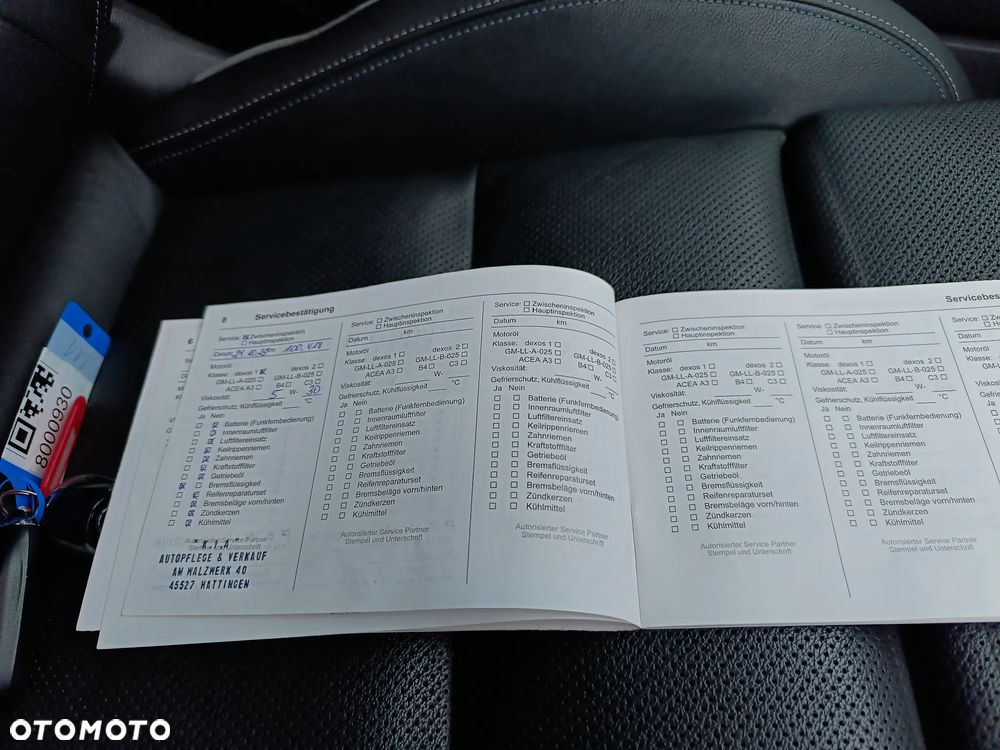 8 Servicebestätigung
Service: Zwischeninspektion
Hauptinspektion
Datum km 100,418
Motoröl
Klasse: dexos 1 dexos 2
GM-LL-A-025 GM-LL-B-025
ACEA A3 B4 C3
Viskosität: 5 W- 30
Gefrierschutz, Kühlflüssigkeit °C
Ja Nein
Batterie (Funkfernbedienung)
Innenraumluftfilter
Luftfiltereinsatz
Keilrippenriemen
Zahnriemen
Kraftstofffilter
Getriebeöl
Bremsflüssigkeit
Reifenreparaturset
Bremsbeläge vorn/hinten
Zündkerzen
Kühlmittel
Autorisierter Service Partner
Stempel und Unterschrift
AUTOPFLEGE & VERKAUF
AM WALZWERK 40
45527 HATTINGEN
Service: Zwischeninspektion
Hauptinspektion
Datum km
Motoröl
Klasse: dexos 1 dexos 2
GM-LL-A-025 GM-LL-B-025
ACEA A3 B4 C3
Viskosität: W-
Gefrierschutz, Kühlflüssigkeit °C
Ja Nein
Batterie (Funkfernbedienung)
Innenraumluftfilter
Luftfiltereinsatz
Keilrippenriemen
Zahnriemen
Kraftstofffilter
Getriebeöl
Bremsflüssigkeit
Reifenreparaturset
Bremsbeläge vorn/hinten
Zündkerzen
Kühlmittel
Autorisierter Service Partner
Stempel und Unterschrift
Service: Zwischeninspektion
Hauptinspektion
Datum km
Motoröl
Klasse: dexos 1 dexos 2
GM-LL-A-025 GM-LL-B-025
ACEA A3 B4 C3
Viskosität: W-
Gefrierschutz, Kühlflüssigkeit °C
Ja Nein
Batterie (Funkfernbedienung)
Innenraumluftfilter
Luftfiltereinsatz
Keilrippenriemen
Zahnriemen
Kraftstofffilter
Getriebeöl
Bremsflüssigkeit
Reifenreparaturset
Bremsbeläge vorn/hinten
Zündkerzen
Kühlmittel
Autorisierter Service Partner
Stempel und Unterschrift
Service: Zwischeninspektion
Hauptinspektion
Datum km
Motoröl
Klasse: dexos 1 dexos 2
GM-LL-A-025 GM-LL-B-025
ACEA A3 B4 C3
Viskosität: W-
Gefrierschutz, Kühlflüssigkeit °C
Ja Nein
Batterie (Funkfernbedienung)
Innenraumluftfilter
Luftfiltereinsatz
Keilrippenriemen
Zahnriemen
Kraftstofffilter
Getriebeöl
Bremsflüssigkeit
Reifenreparaturset
Bremsbeläge vorn/hinten
Zündkerzen
Kühlmittel
Autorisierter Service Partner
Stempel und Unterschrift
Service: Zwischeninspektion
Hauptinspektion
Datum km
Motoröl
Klasse: dexos 1 dexos 2
GM-LL-A-025 GM-LL-B-025
ACEA A3 B4 C3
Viskosität: W-
Gefrierschutz, Kühlflüssigkeit °C
Ja Nein
Batterie (Funkfernbedienung)
Innenraumluftfilter
Luftfiltereinsatz
Keilrippenriemen
Zahnriemen
Kraftstofffilter
Getriebeöl
Bremsflüssigkeit
Reifenreparaturset
Bremsbeläge vorn/hinten
Zündkerzen
Kühlmittel
Autorisierter Service Partner
Stempel und Unterschrift
Servicebest
Service:
Datum
Motoröl
Klasse:
6
8000930
OTOMOTO